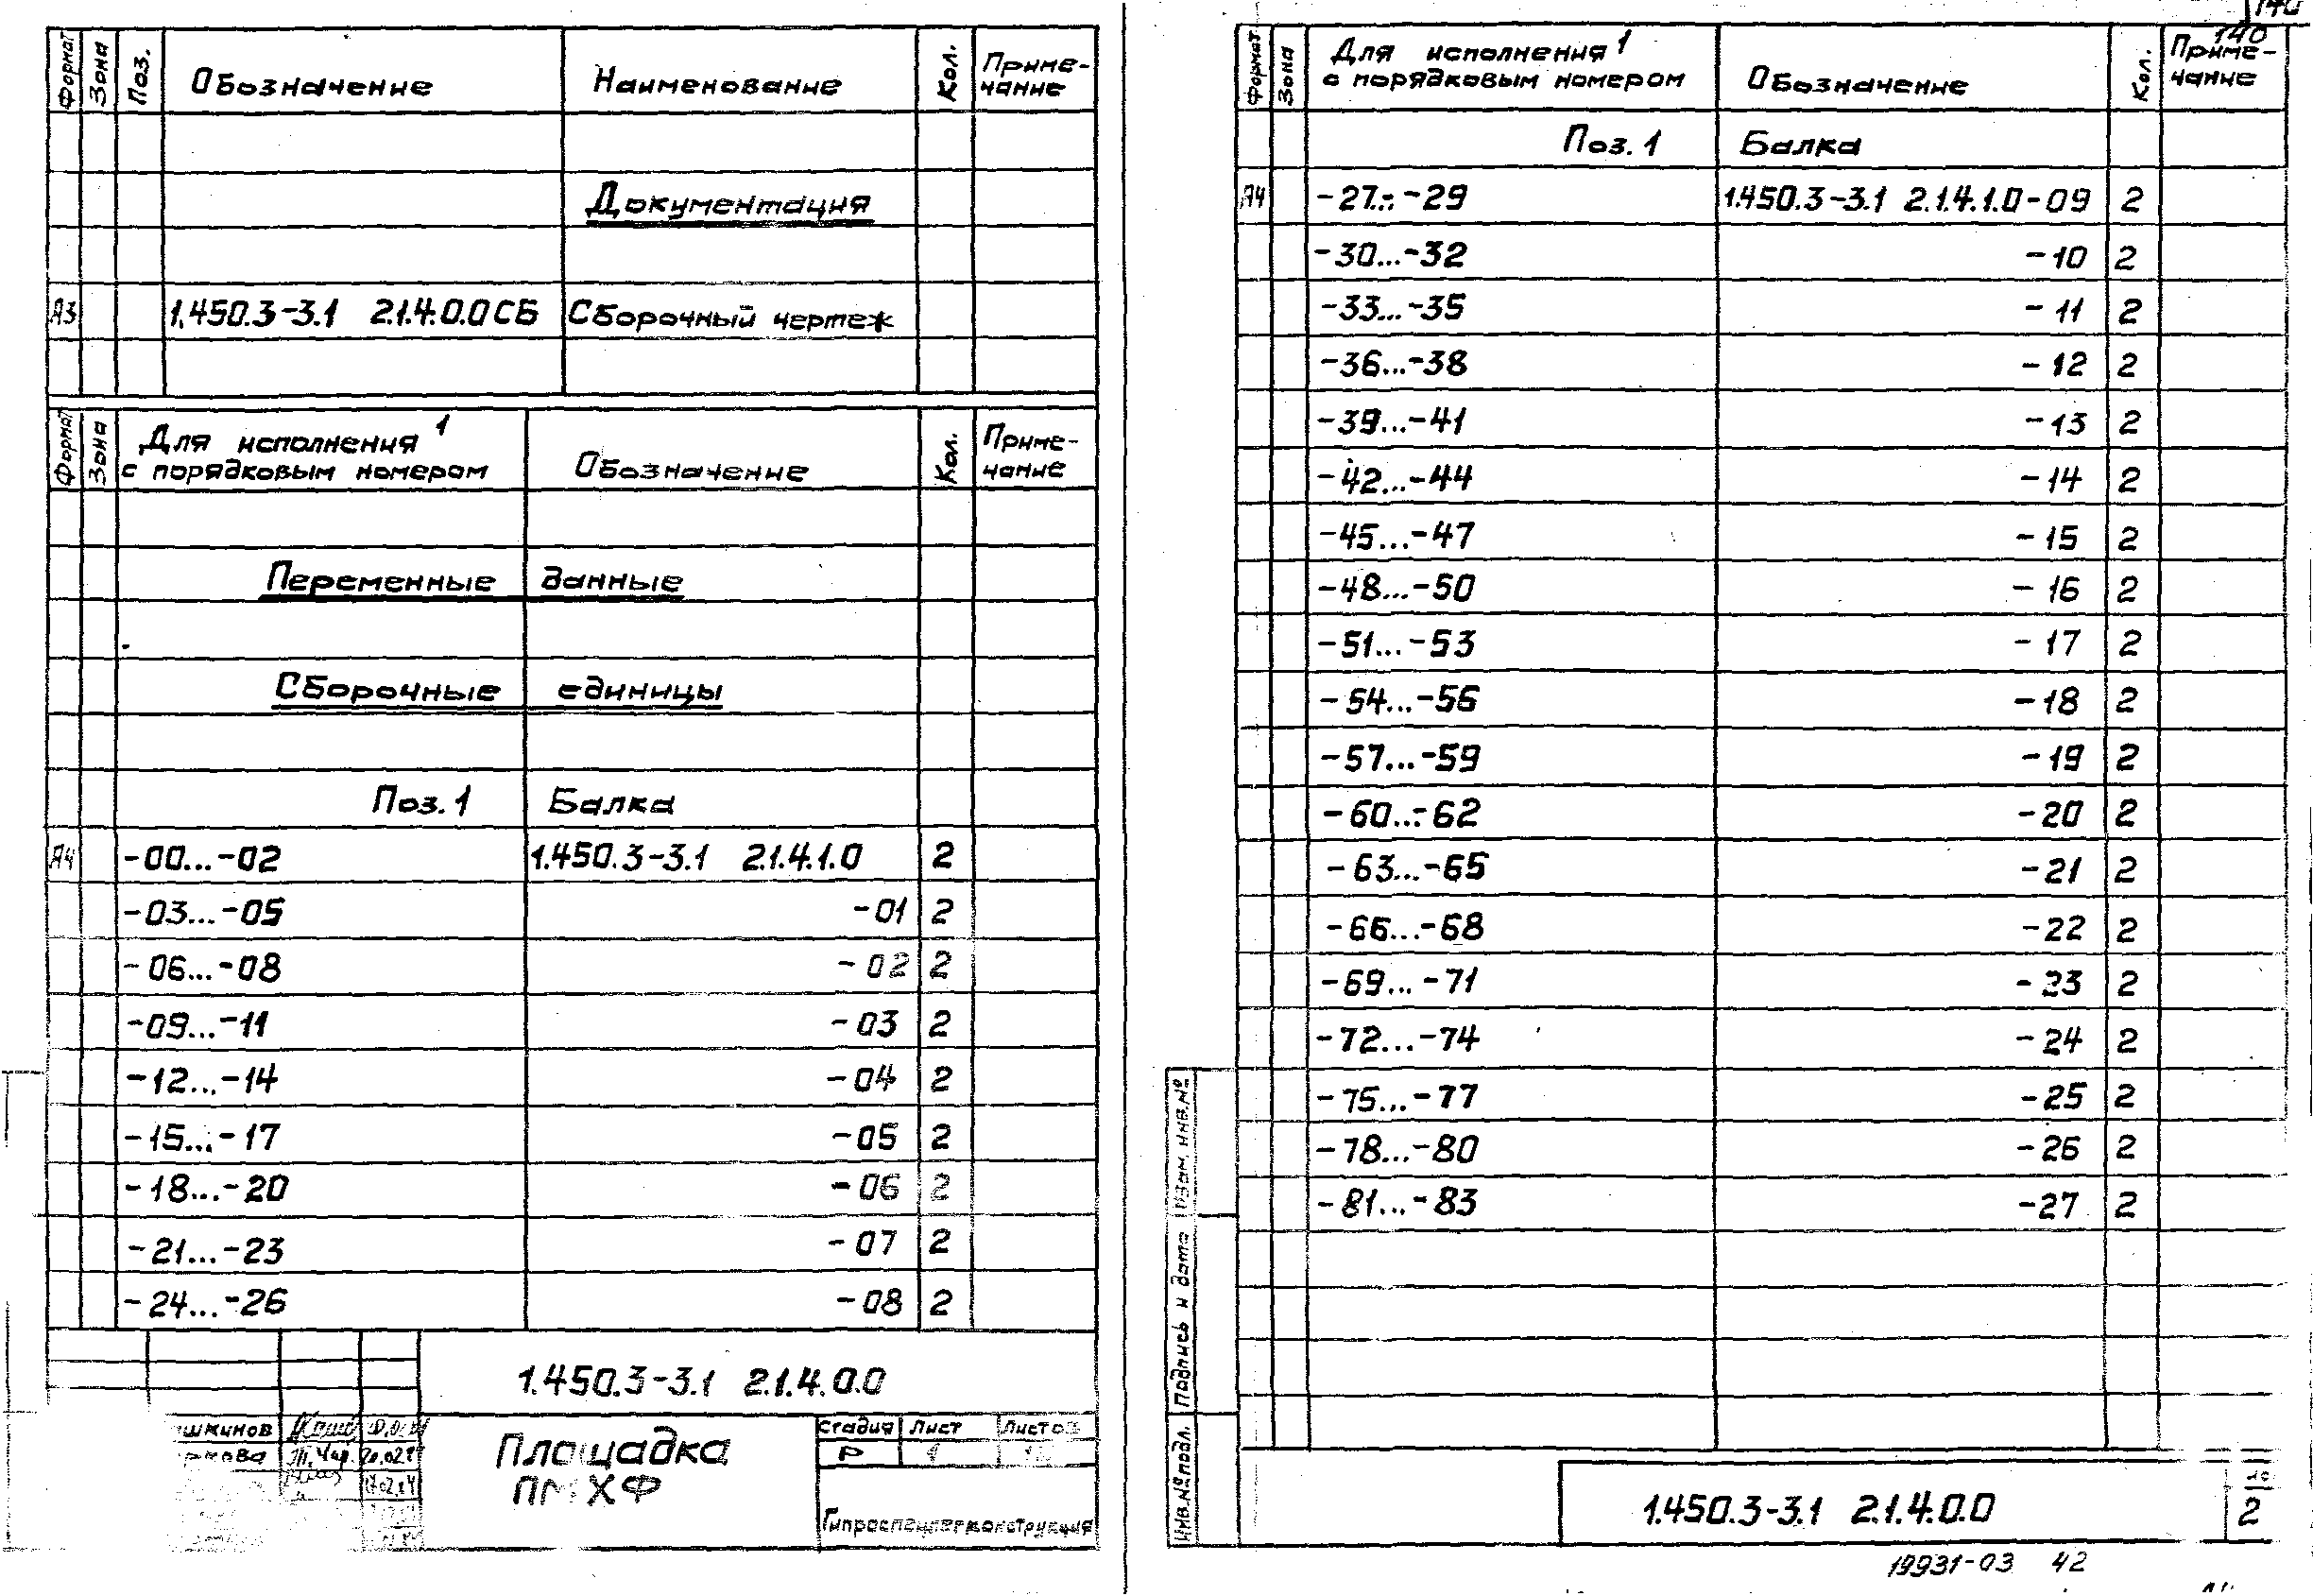 Формат Зона Поз. Обозначение Наименование Кол. Приме-
чание
Документация
А3 1.450.3-3.1 2.1.4.0.0СБ Сборочный чертеж
Формат Зона Для исполнения 1 Обозначение Кол. Приме-
с порядковым номером чание
Переменные данные
Сборочные единицы
Поз. 1 Балка
А4 -00...-02 1.450.3-3.1 2.1.4.1.0 2
-03...-05 -01 2
-06...-08 -02 2
-09...-11 -03 2
-12...-14 -04 2
-15...-17 -05 2
-18...-20 -06 2
-21...-23 -07 2
-24...-26 -08 2
1.450.3-3.1 2.1.4.0.0
Площадка
ПМХФ
Стадия Лист Листов
Р 1
Гипроспецлегконструкция
140
140
Формат Зона Для исполнения 1 Обозначение Кол. Приме-
с порядковым номером чание
Поз. 1 Балка
А4 -27...-29 1.450.3-3.1 2.1.4.1.0-09 2
-30...-32 -10 2
-33...-35 -11 2
-36...-38 -12 2
-39...-41 -13 2
-42...-44 -14 2
-45...-47 -15 2
-48...-50 -16 2
-51...-53 -17 2
-54...-56 -18 2
-57...-59 -19 2
-60...-62 -20 2
-63...-65 -21 2
-66...-68 -22 2
-69...-71 -23 2
-72...-74 -24 2
-75...-77 -25 2
-78...-80 -26 2
-81...-83 -27 2
Инв.№ подл. Подпись и дата Взам. инв.№
1.450.3-3.1 2.1.4.0.0
2
19931-03 42